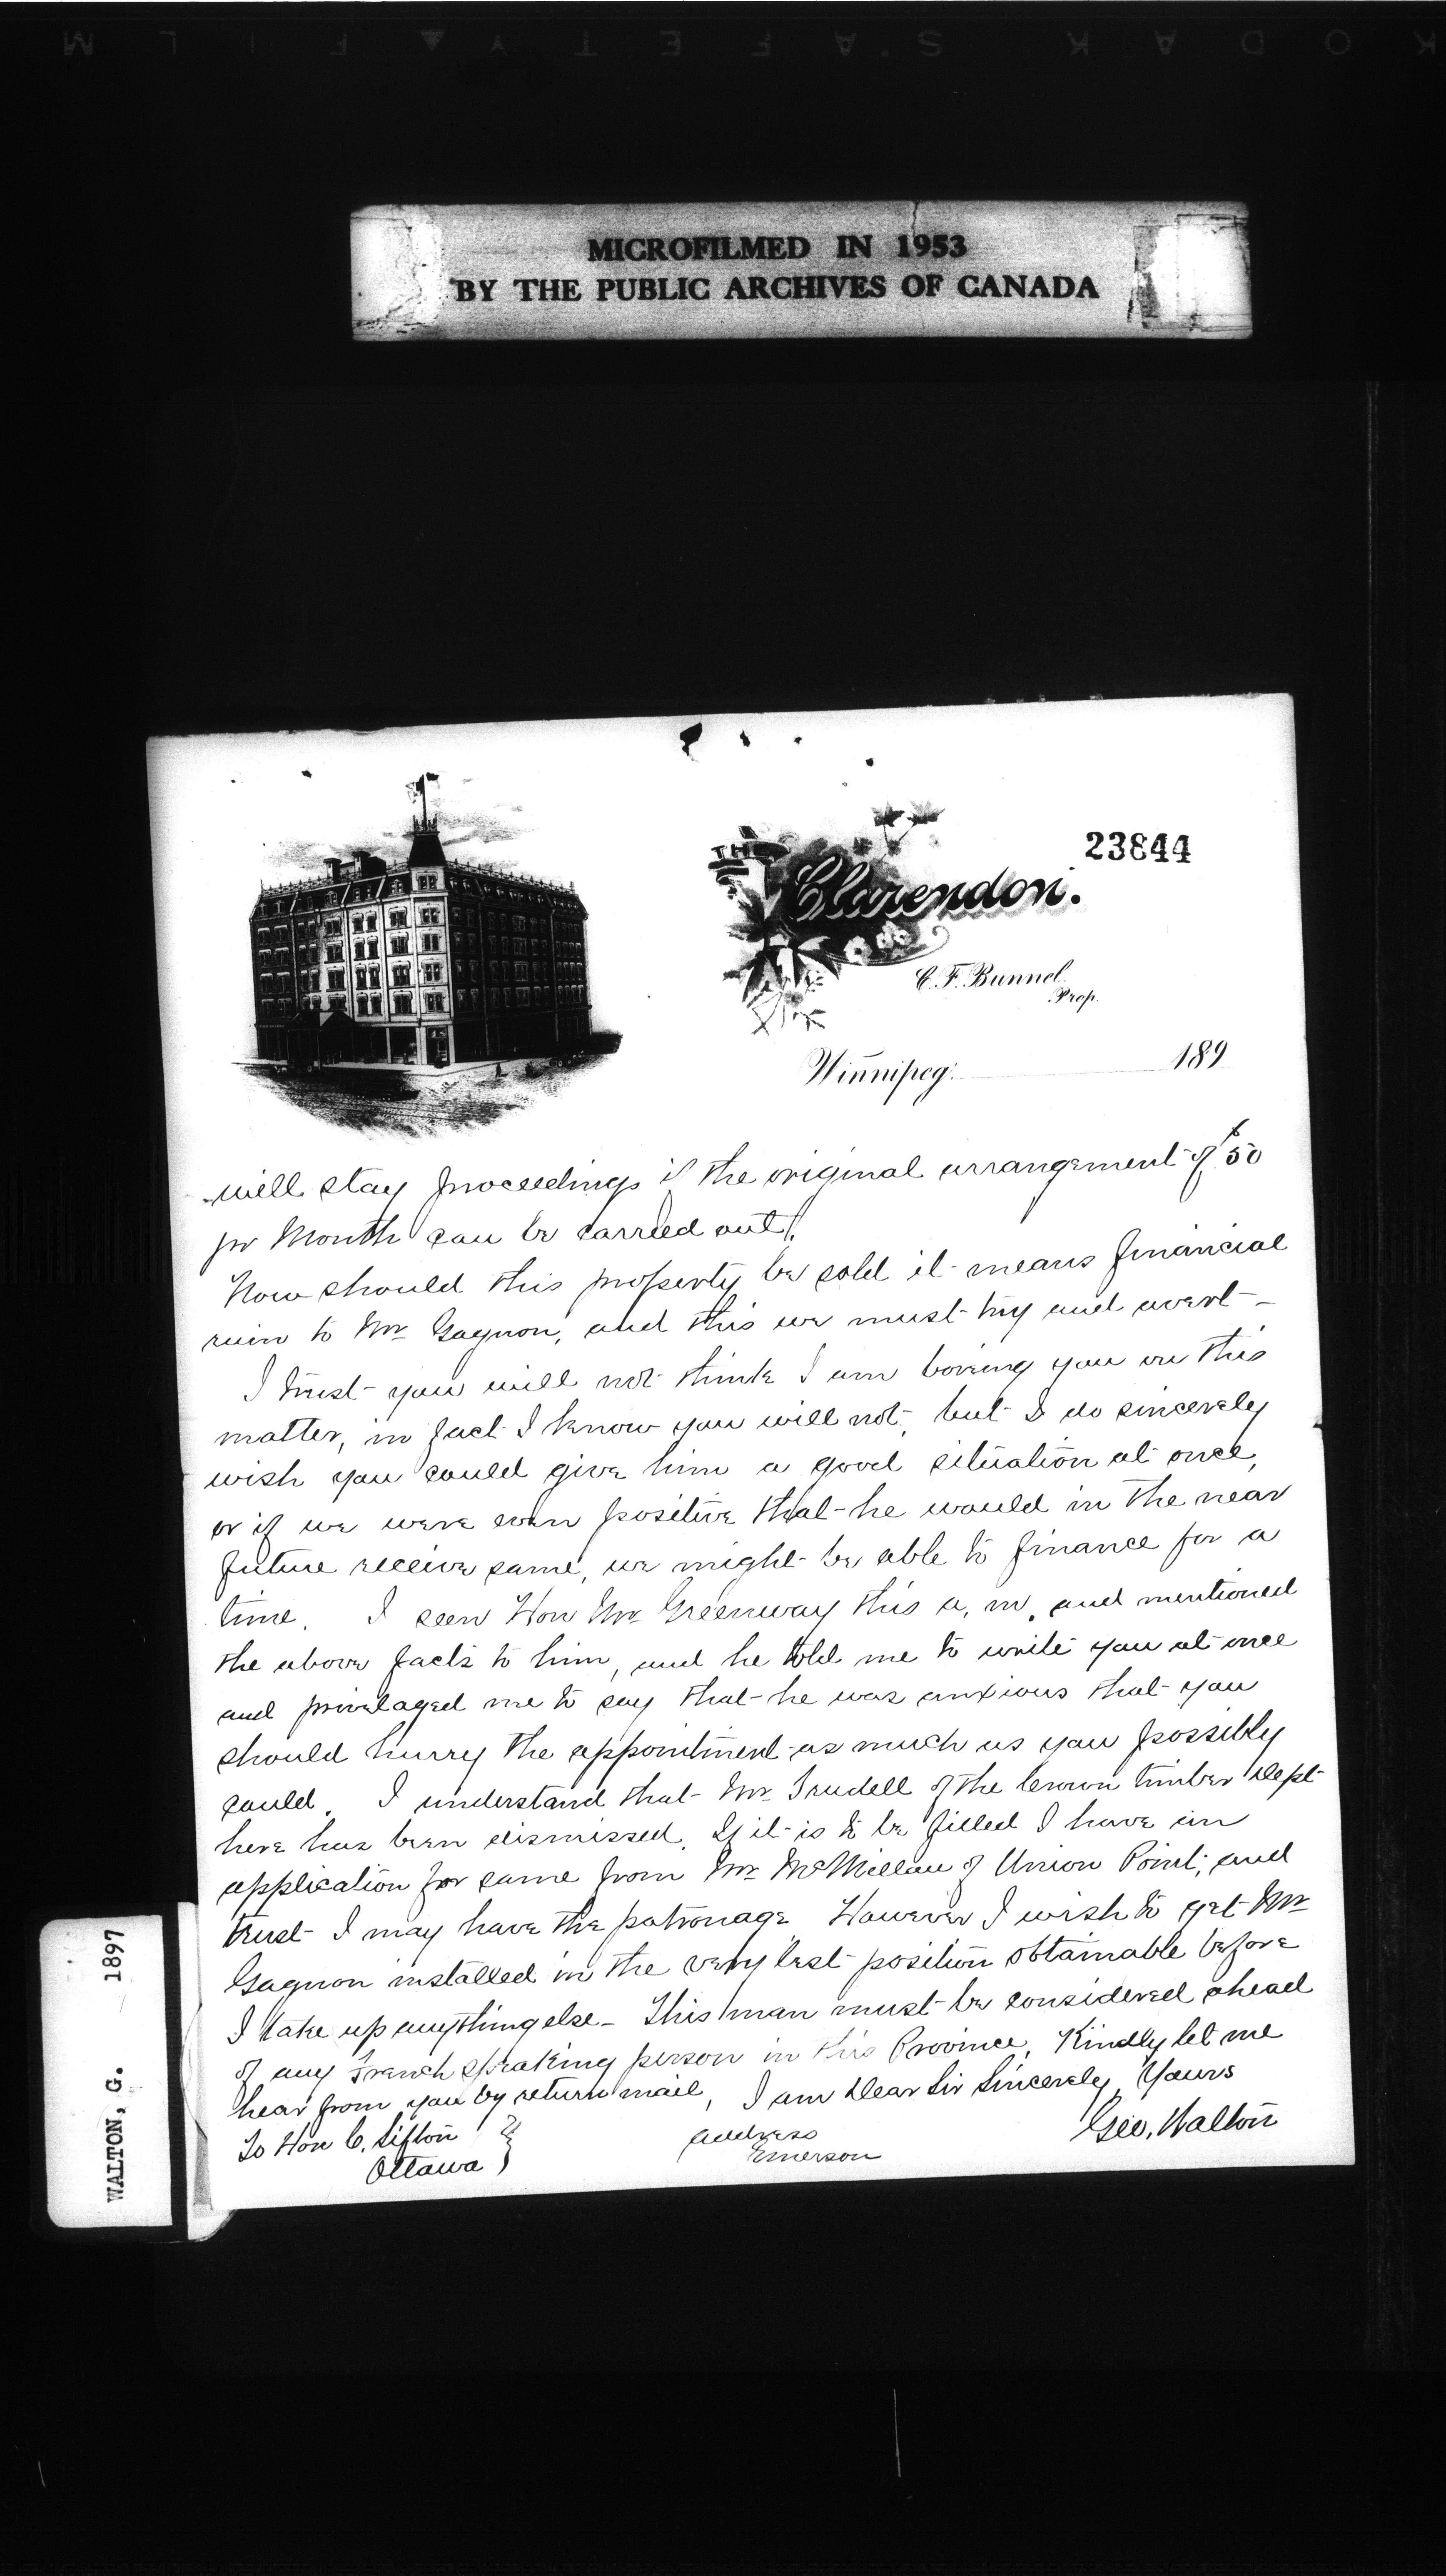 KODAK SAFETY FILM
MICROFILMED IN 1953
BY THE PUBLIC ARCHIVES OF CANADA
23844
THE
Clarendon.
C. F. Bunnel.
Prop.
Winnipeg. 189
will stay proceedings if the original arrangement of $50
pr Month can be carried out.
Now should this property be sold it means financial
ruin to Mr Gagnon, and this we must try and avert-
I trust you will not think I am boring you on this
matter, in fact I know you will not, but I do sincerely
wish you could give him a good situation at once,
or if we were even positive that he would in the near
future receive same, we might be able to finance for a
time. I seen Hon Mr Greenway this a.m. and mentioned
the above facts to him, and he told me to write you at once
and privelaged me to say that he was anxious that you
should hurry the appointment as much as you possibly
could. I understand that Mr Trudell of the Crown timber Dept
here has been dismissed. If it is to be filled I have an
application for same from Mr McMillan of Union Point, and
trust I may have the patronage However I wish to get Mr
Gagnon installed in the very best position obtainable before
I take up anything else- This man must be considered ahead
of any French speaking person in this Province, Kindly let me
hear from you by return mail, I am Dear Sir Sincerely Yours
To Hon C. Sifton address Geo. Walton
Ottawa Emerson
WALTON, G. 1897